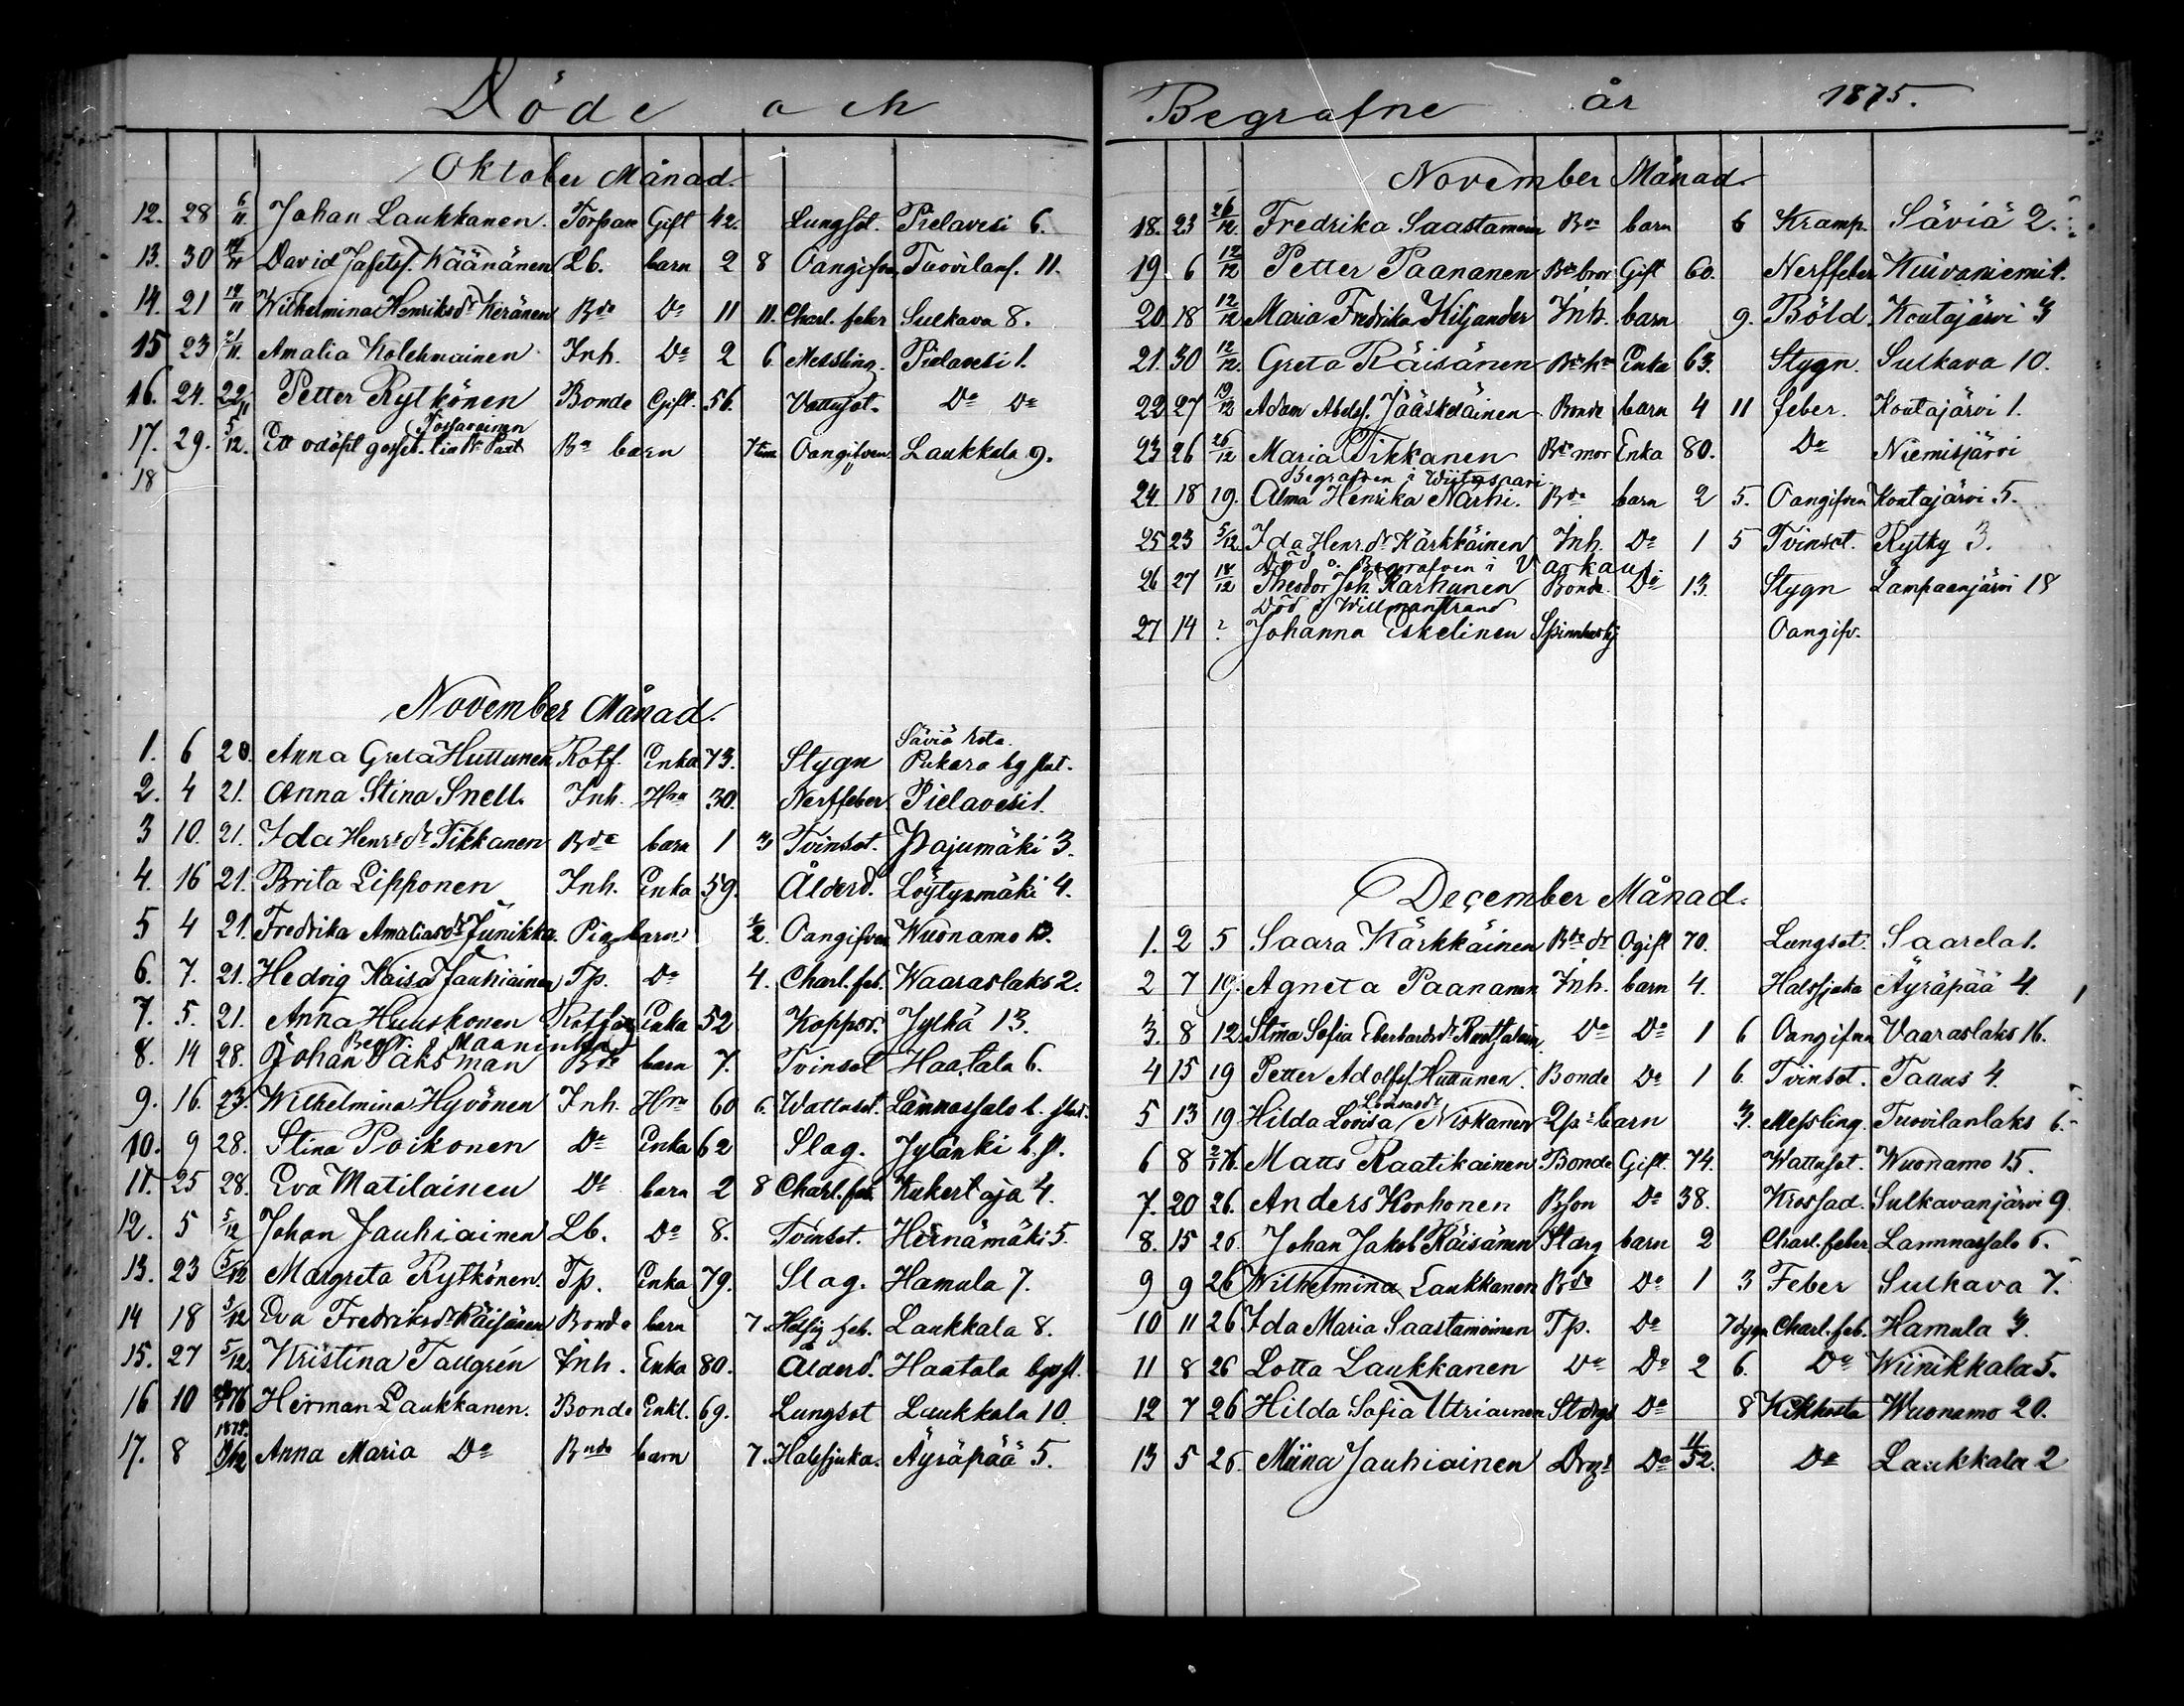 Döde och
Oktober Månad.
12. 28 6/11 Johan Laukkanen. Torpare Gift 42. Lungsot. Pielavesi 6.
13. 30 14/11 David Jafetss. Käänänen Lb. barn 2 8 Oangifven Tuovilanl. 11.
14. 21 14/11 Wilhelmina Henriksdr Keränen Bde Do 11 11. Charl. feber Sulkava 8.
15 23 21/11. Amalia Kolehmainen Inh. Do 2 6. Messling. Pielavesi 1.
16. 24. 22/11 Petter Rytkönen Bonde Gift. 56. Vattusot. Do Do
Tossavainen
17. 29. 5/12. Ett odöpt gosseb. Bn barn 7 tim Oangifven Laukkala 9.
18
November Månad.
Säviä rote
1. 6 20. Anna Greta Huttunen Rotf. Enka 73. Stygn Pukara bg slut.
2. 4 21. Anna Stina Snell. Inh. Hru 30. Nerffeber Pielavesi 1.
3 10. 21. Ida Henr:dr Tikkanen Bde barn 1 3 Tvinsot. Pajumäki 3.
4. 16 21. Brita Lipponen Inh. Enka 59. Ålderd. Löytynmäki 4.
5 4 21. Fredrika Amaliasdr Junikka. Pigs barn 1/2. Oangifven Wuonamo 12.
6. 7. 21. Hedvig Kaisa Jauhiainen Tp. Do 4. Charl. feb. Waaraslaks 2.
7. 5. 21. Anna Huuskonen Enka 52 Koppor. Jylhä 13.
Begr. i Maaninka
8. 14 28. Johan Saksman Bde barn 7. Tvinsot Haatala 6.
9. 16. 23. Wilhelmina Hyvönen Inh. Hru 60 6. Wattusot. Lammassalo b. slut.
10. 9 28. Stina Poikonen Do Enka 62 Slag. Jylänki b. s.
11. 25 28. Eva Matilainen Do barn 2 8 Charl. feb. Kukertaja 4.
12. 5 5/12 Johan Jauhiainen Lb. Do 8. Tvinsot. Hirnämäki 5.
13. 23 5/12 Margreta Rytkönen. Tp. Enka 79. Slag. Hamula 7.
14 18 5/12 Eva Fredriksdr Räisänen Bonde barn 7. Hetsig feb. Laukkala 8.
15. 27 5/12 Kristina Tallgrén Inh. Enka 80. Ålderd. Haatala bysl.
16 10 Herman Laukkanen. Bonde Enkl. 69. Lungsot Laukkala 10.
1875.
17. 8 Anna Maria Do Bnde barn 7. Halssjuka. Äyräpää 5.
Begrafne år 1875.
November Månad.
18. 23 26/12. Fredrika Saastamoin Bde barn 6 Kramp. Säviä 2.
19. 6 12/12 Petter Paananen Bde bror Gift 60. Nerffeber Kuivaniemi 1.
20 18 12/12 Maria Fredrika Kiljander Inh. barn 9. Böld. Koutajärvi 3
21. 30 12/12 Greta Räisänen Enka 63. Stygn. Sulkava 10.
22 27 19/12 Adam Abelss. Jääskeläinen Bonde barn 4 11 feber. Koutajärvi 1.
23 26 26/12 Maria Tikkanen Bde mor Enka 80. Do Niemisjärvi
Begrafven i Wiitasaari.
24. 18 19. Alma Henrika Närhi. Bde barn 2 5. Oangifven Koutajärvi 5.
25 23 5/12. Ida Henr.dr Kärkkäinen Inh. Do 1 5 Tvinsot. Rytky 3.
Död o. Begrafven i Varkaus.
26 27 18/12 Theodor Joh. Karhunen Bonde Do 13. Stygn Lampaanjärvi 18
Död i Willmanstrand
27 14 ? Johanna Eskelinen Spinnhushj Oangifv.
December Månad.
1. 2 5 Saara Kärkkäinen Bde dr Ogift 70. Lungsot. Saarela 1.
2 7 19. Agneta Paananen Inh. barn 4. Halssjuka Äyräpää 4.
3. 8 12. Stina Sofia Eberhardsdr Do Do 1 6 Oangifven Vaaraslaks 16.
4 15 19 Petter Adolfss. Huttunen. Bonde Do 1 6. Tvinsot. Taaus 4.
Lovisasdr
5 13 19 Hilda Lovisa Niskanen barn 3. Messling. Tuovilanlaks 6.
6 8 2/1 76. Matts Raatikainen Bonde Gift. 74. Wattusot. Wuonamo 15.
7. 20 26. Anders Korhonen Bson Do 38. Krossad. Sulkavanjärvi 9.
8. 15 26. Johan Jakob Räisänen Starg barn 2 Charl. feber Lammassalo 6.
9 9 26 Wilhelmina Laukkanen Bde Do 1 3 Feber Sulkava 7.
10 11 26 Ida Maria Saastamoinen Tp. Do 7 dygn Charl. feb. Hamula 3.
11 8 26 Lotta Laukkanen Do Do 2 6. Do Winikkala 5.
12 7 26 Hilda Sofia Utriainen Stargs Do 8 Kikhosta Wuonamo 20.
13 5 26. Miina Jauhiainen Drgs Do 11/52. Do Laukkala 2